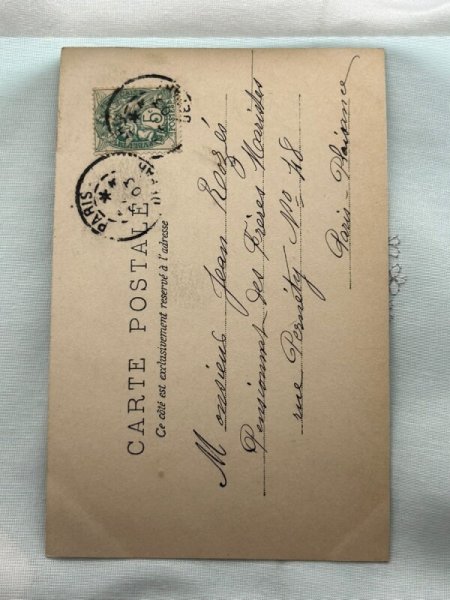 CARTE POSTALE
Ce côté est exclusivement réservé à l'adresse
Monsieur Jean Rouzé
Pensionnat des Frères Maristes
rue Pernéty No 48
Paris-Plaisance
PARIS
5